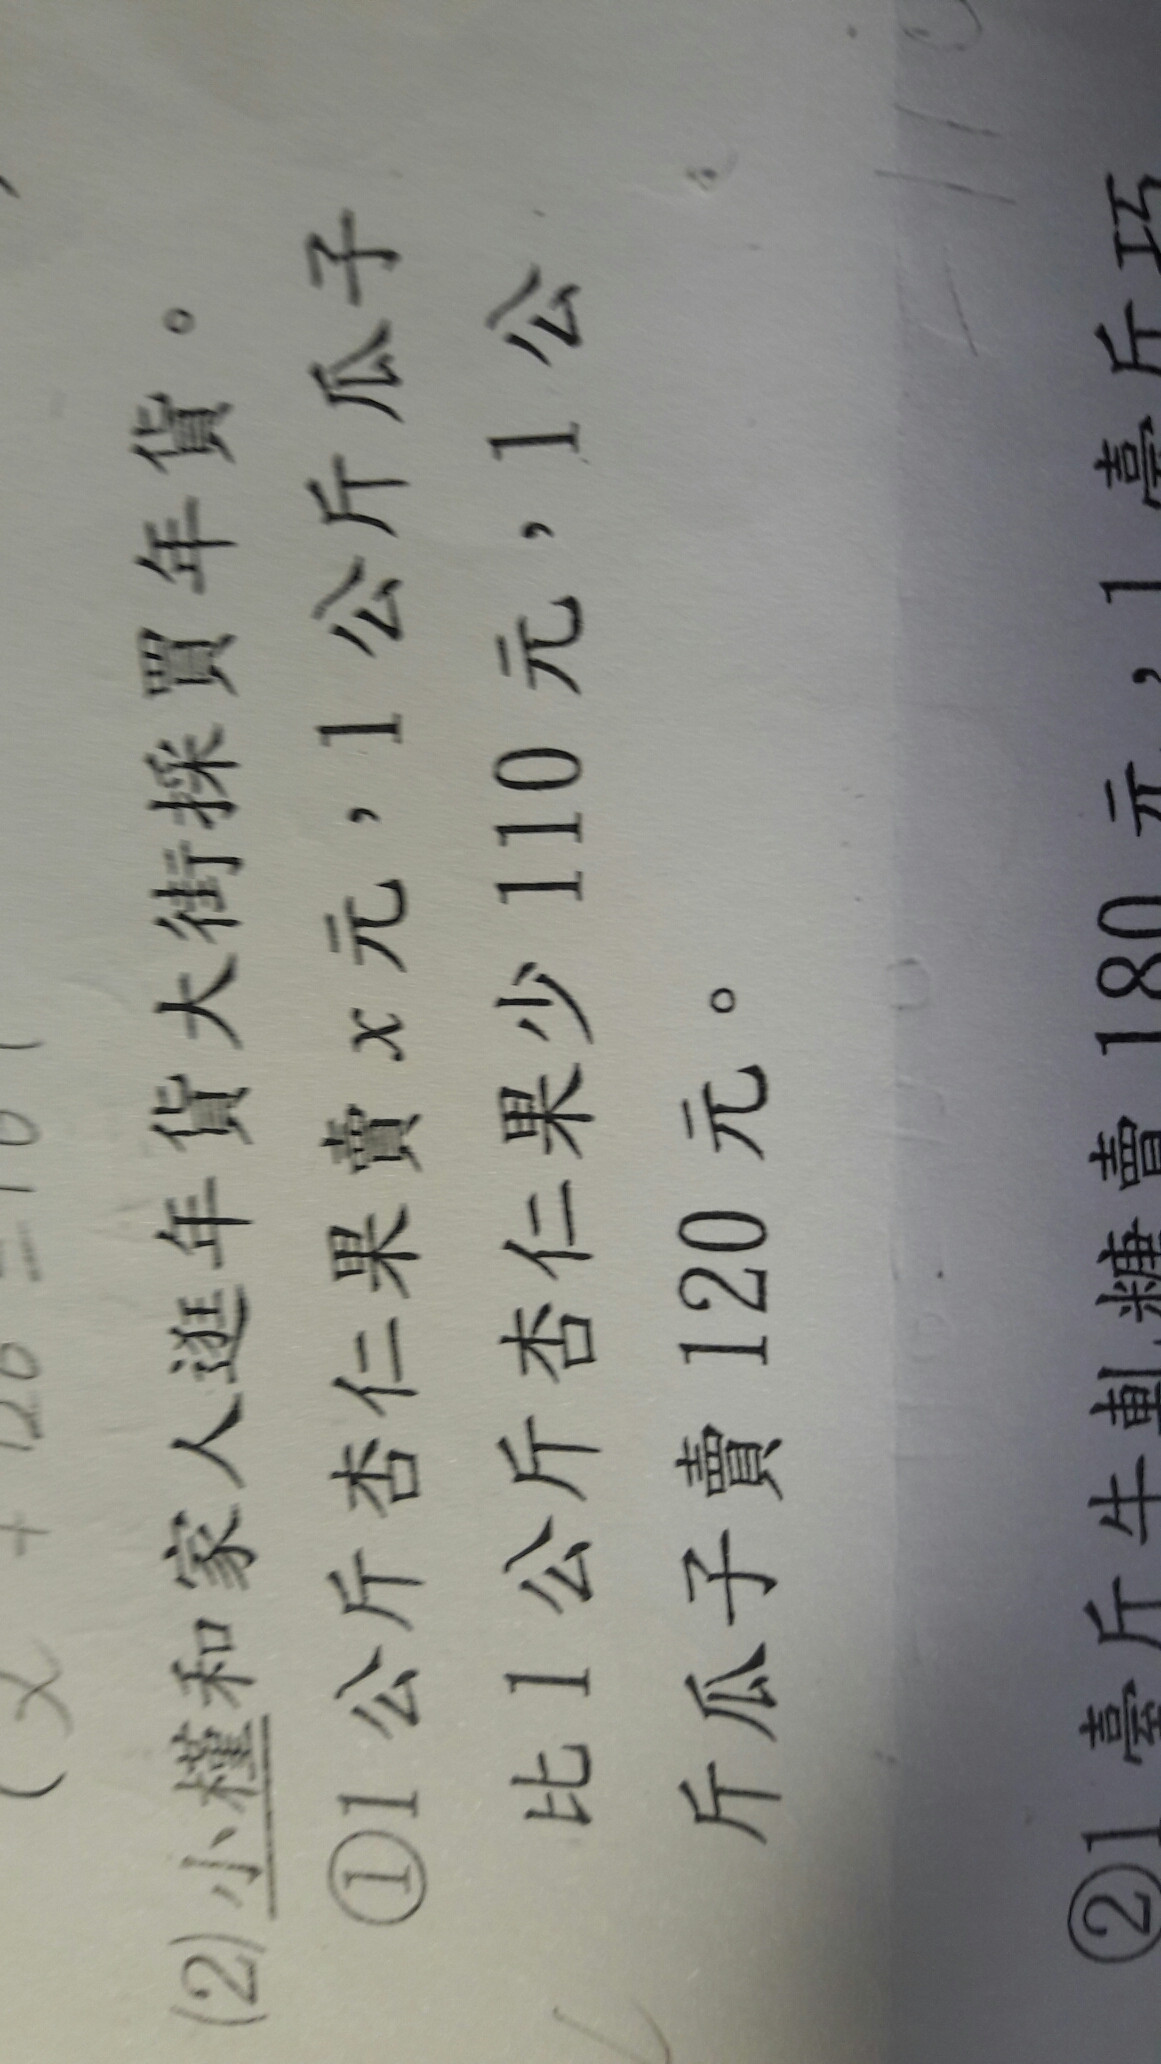 (2)小槿和家人逛年貨大街採買年貨。
①1公斤杏仁果賣x元,1公斤瓜子
比1公斤杏仁果少110元,1公
斤瓜子賣120元。
②1臺斤牛軋糖賣180元,1臺斤巧